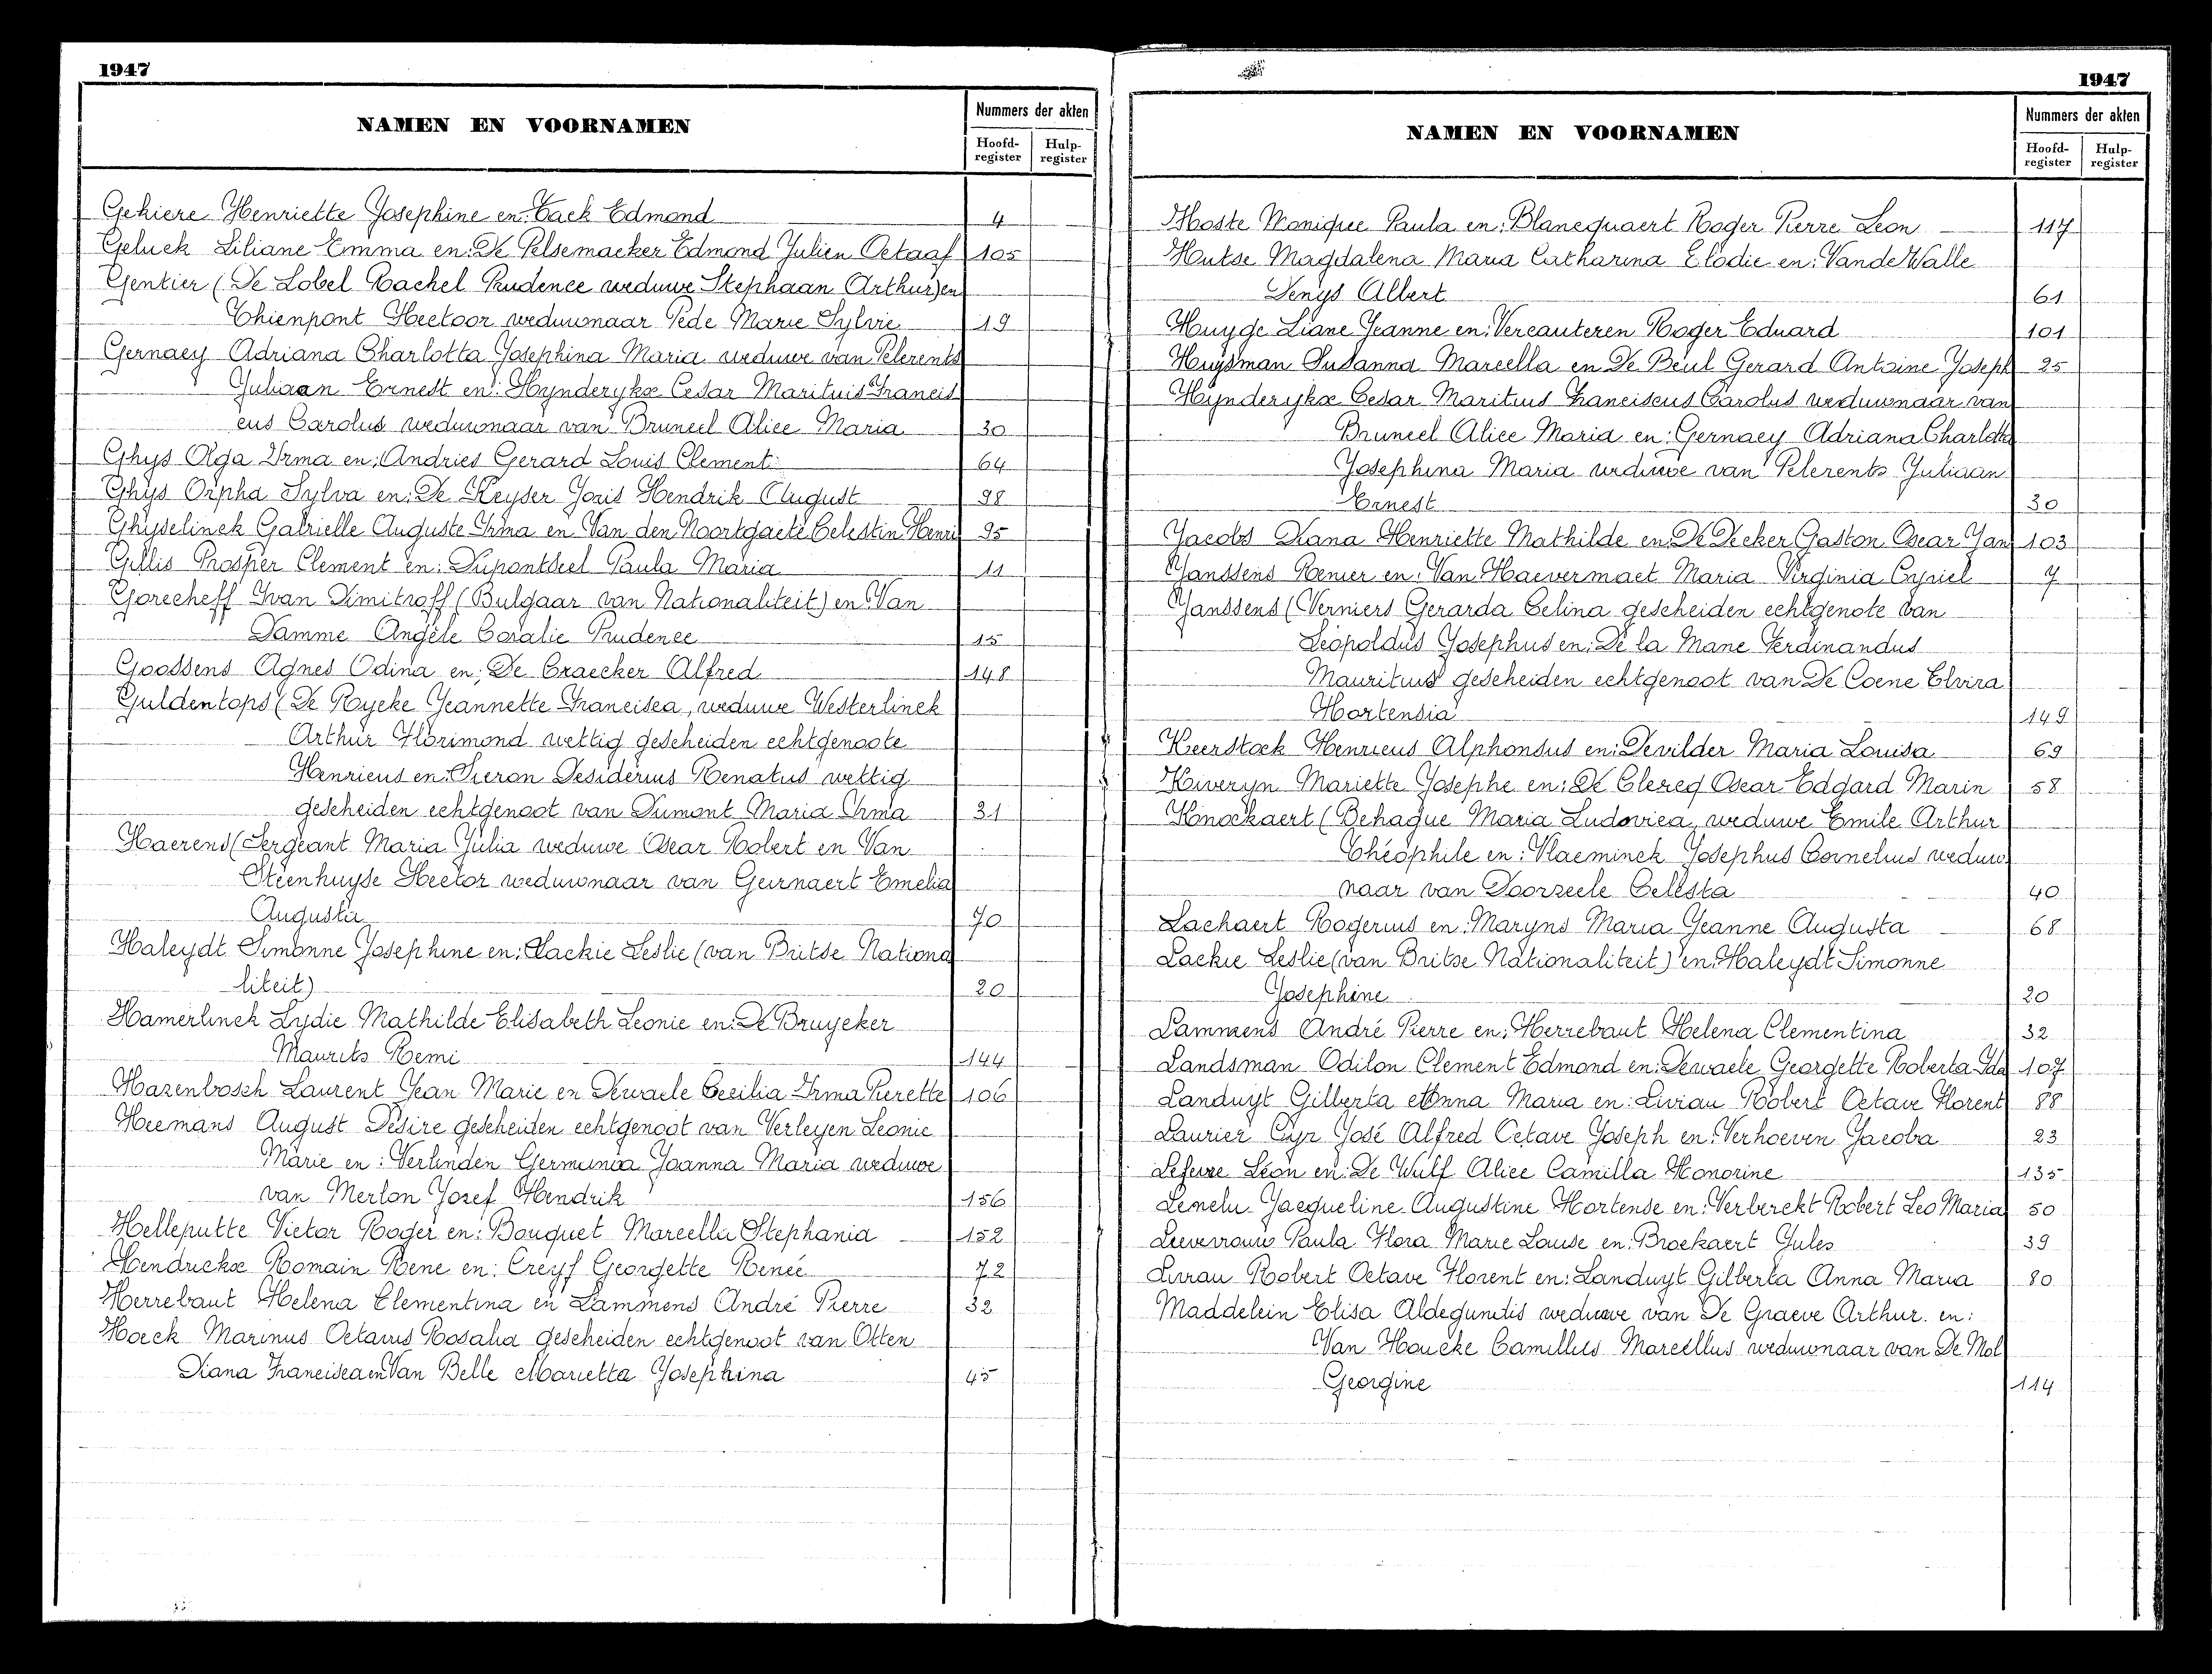 1947
NAMEN EN VOORNAMEN
Nummers der akten
Hoofd-register Hulp-register
Gekiere Henriette Josephine en: Tack Edmond 4
Geluck Liliane Emma en: De Pelsemaeker Edmond Julien Octaaf 105
Gentier (De Lobel Rachel Prudence weduwe Stephaan Arthur) en
Thienpont Hectoor weduwnaar Pede Marie Sylvie 19
Gernaey Adriana Charlotta Josephina Maria weduwe van Pelerents
Juliaan Ernest en: Hynderykx Cesar Marituis Francis
cus Carolus weduwnaar van Bruneel Alice Maria 30
Ghys Olga Irma en: Andries Gerard Louis Clement 64
Ghys Orpha Sylva en: De Keyser Joris Hendrik August 98
Ghyselinck Gabrielle Auguste Irma en Van den Noortgaete Celestin Henri 95
Gillis Prosper Clement en: Dupontseel Paula Maria 11
Gorecheff Ivan Dimitroff (Bulgaar van Nationaliteit) en: Van
Damme Angèle Coralie Prudence 15
Goossens Agnes Odina en: De Craecker Alfred 148
Guldentops (De Rycke Jeannette Francisca, weduwe Westerlinck
Arthur Florimond wettig gescheiden echtgenoote
Henricus en: Sieron Desiderius Renatus wettig
gescheiden echtgenoot van Dumont Maria Irma 31
Haerens (Sergeant Maria Julia weduwe Oscar Robert en Van
Steenhuyse Hector weduwnaar van Geirnaert Emelia
Augusta 70
Haleydt Simonne Josephine en: Lackie Leslie (van Britse Nationa
liteit) 20
Hamerlinck Lydie Mathilde Elisabeth Leonie en: De Bruyeker
Maurits Remi 144
Hazenbosch Laurent Jean Marie en Dewaele Cecilia Irma Pierette 106
Heemans August Désire gescheiden echtgenoot van Verleyen Leonie
Marie en: Verlinden Germania Joanna Maria weduwe
van Merlon Jozef Hendrik 156
Helleputte Victor Roger en: Bouquet Marcella Stephania 152
Hendrickx Romain Rene en: Creyf Georgette Renée 72
Herrebaut Helena Clementina en Lammens André Pierre 32
Hoeck Marinus Octavus Rosalia gescheiden echtgenoot van Otten
Diana Francisca en Van Belle Marietta Josephina 45
1947
NAMEN EN VOORNAMEN
Nummers der akten
Hoofd-register Hulp-register
Hoste Monique Paula en: Blancquaert Roger Pierre Leon 117
Hutse Magdalena Maria Catharina Elodie en: Van de Walle
Denys Albert 61
Huyge Liane Jeanne en: Vercauteren Roger Eduard 101
Huysman Susanna Marcella en De Beul Gerard Antoine Joseph 25
Hynderykx Cesar Maritius Franciscus Carolus weduwnaar van
Bruneel Alice Maria en: Gernaey Adriana Charlotta
Josephina Maria weduwe van Pelerents Juliaan
Ernest 30
Jacobs Diana Henriette Mathilde en: De Decker Gaston Oscar Jan 103
Janssens Renier en: Van Haevermaet Maria Virginia Cyriel 7
Janssens (Verniers Gerarda Celina gescheiden echtgenote van
Leopoldus Josephus en: De la Mane Ferdinandus
Mauritius gescheiden echtgenoot van De Coene Elvira
Hortensia 149
Keerstock Henricus Alphonsus en: Devilder Maria Louisa 69
Kiweryn Mariette Josephe en: De Clercq Oscar Edgard Marin 58
Knockaert (Behague Maria Ludovica, weduwe Emile Arthur
Théophile en: Vlaeminck Josephus Cornelius weduw
naar van Doorzeele Celesta 40
Lachaert Rogerius en: Maryns Maria Jeanne Augusta 68
Lackie Leslie (van Britse Nationaliteit) en: Haleydt Simonne
Josephine 20
Lammens André Pierre en: Herrebaut Helena Clementina 32
Landsman Odilon Clement Edmond en: Dewaele Georgette Roberta Ida 107
Landuyt Gilberta Anna Maria en: Livrau Robert Octave Florent 88
Laurier Cyr José Alfred Octave Joseph en: Verhoeven Jacoba 23
Lefevre Léon en: De Wulf Alice Camilla Honorine 135
Lenelu Jacqueline Augustine Hortense en: Verberckt Robert Leo Maria 50
Lievevrouw Paula Flora Marie Louise en: Brockaert Jules 39
Livrau Robert Octave Florent en: Landuyt Gilberta Anna Maria 80
Maddelein Elisa Aldegundis weduwe van De Graeve Arthur en:
Van Houcke Camillus Marcellus weduwnaar van De Mol
Georgine 114